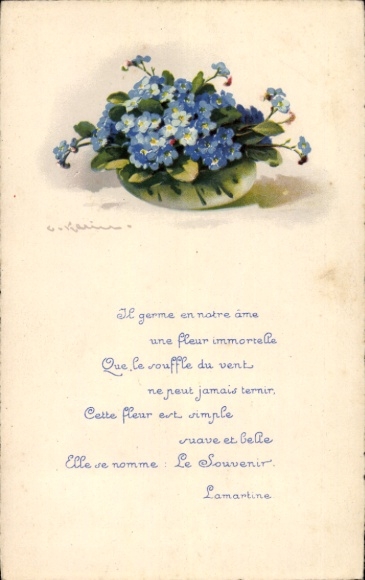 C. Klein
Il germe en notre âme
une fleur immortelle
Que le souffle du vent
ne peut jamais ternir,
Cette fleur est simple
suave et belle
Elle se nomme : Le Souvenir.
Lamartine